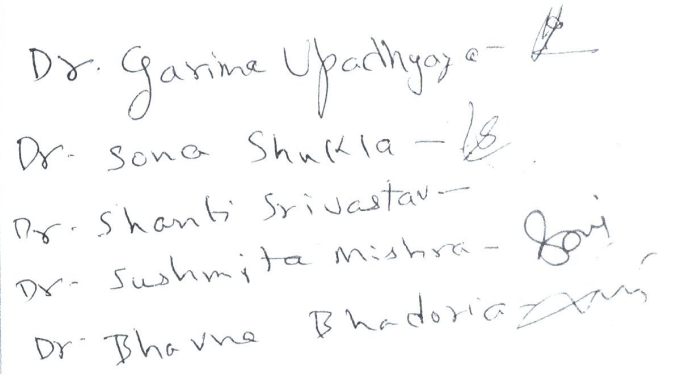 Dr. Garima Upadhyaya -
Dr. Sona Shukla -
Dr. Shanti Srivastav -
Dr. Sushmita Mishra -
Dr. Bhavna Bhadoria -